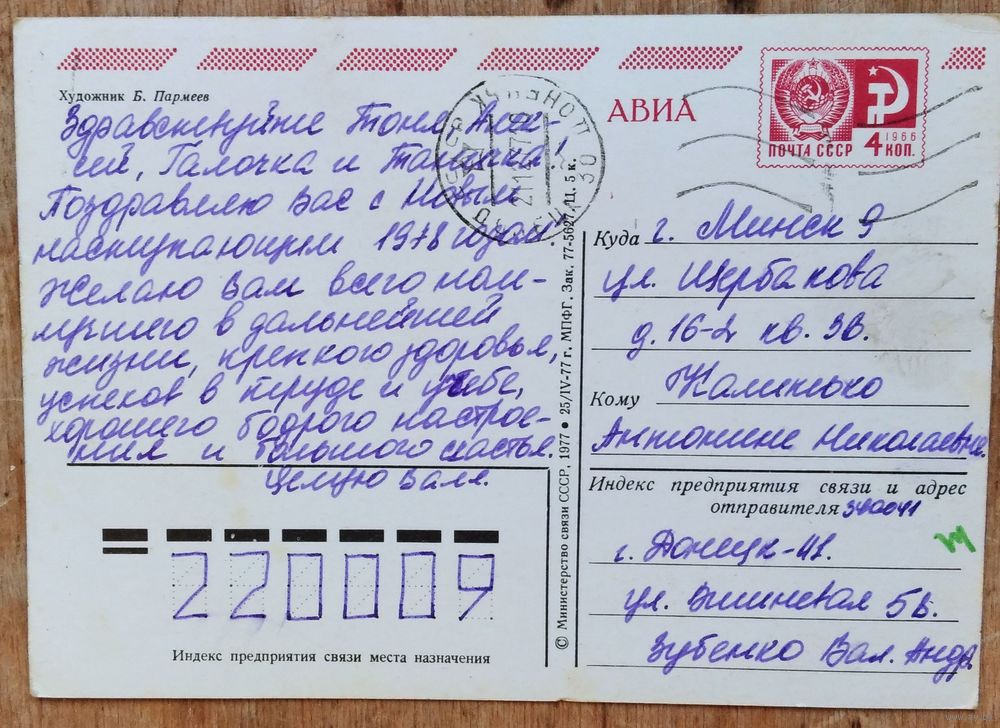 Художник Б. Пармеев
Здравствуйте Тоня, Алек-
сей, Галочка и Танечка!
Поздравляю вас с Новым
наступающим 1978 годом!
Желаю вам всего наи-
лучшего в дальнейшей
жизни, крепкого здоровья,
успехов в труде и учебе,
хорошего бодрого настрое-
ния и большого счастья.
Целую Валя.
АВИА
1966
ПОЧТА СССР 4 КОП.
ДОНЕЦК
Куда г. Минск 9
ул. Щербакова
д. 16-2 кв. 3в.
Кому Калинько
Антонине Николаевне.
Индекс предприятия связи и адрес
отправителя 340041
г. Донецк-41.
ул. Вишневая 5в.
Зубенко Вал. Андр
220009
Индекс предприятия связи места назначения
© Министерство связи СССР, 1977 ● 25/IV-77 г. МПФГ. Зак. 77-5627. Ц. 5 к.